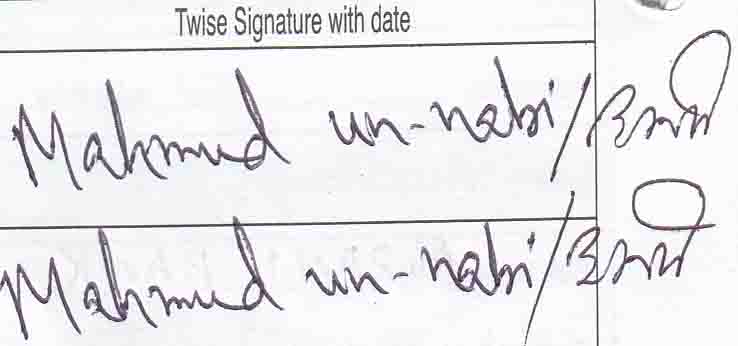 Twise Signature with date
Mahmud un-nabi/
Mahmud un-nabi/